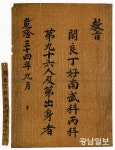 敎旨
閑良丁好南武科丙科
第九十六人及第出身者
乾隆三十四年九月
광남일보